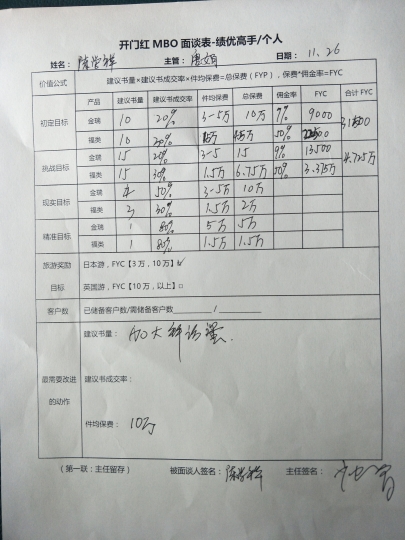 开门红 MBO 面谈表-绩优高手/个人
姓名： 陈学祥 主管： 日期： 11.26
价值公式 建议书量×建议书成交率×件均保费=总保费（FYP），保费*佣金率=FYC
产品 建议书量 建议书成交率 件均保费 总保费 佣金率 FYC 合计 FYC
初定目标 金瑞 10 20% 3-5万 10万 9% 9000
福类 10 30% 50%
挑战目标 金瑞 15 20% 3-5 15 9% 13500
福类 15 30% 1.5万 6.75万 50% 3.375万
现实目标 金瑞 50% 3-5万 10万
福类 30% 1.5万 2万
精准目标 金瑞 1 80% 5万 5万
福类 1 80% 1.5万 1.5万
旅游奖励 日本游，FYC【3 万，10 万】
目标 英国游，FYC【10 万，以上】□
客户数 已储备客户数/需储备客户数 /
建议书量：
最需要改进 建议书成交率：
的动作
件均保费： 10万
（第一联：主任留存） 被面谈人签名： 陈学祥 主任签名：